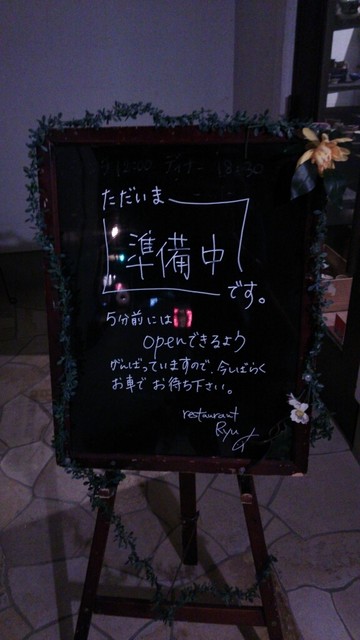 12:00 ディナー 18:30
ただいま
準備中
です。
5分前には
openできるよう
がんばっていますので、今しばらく
お車で お待ち下さい。
restaurant
Ryu